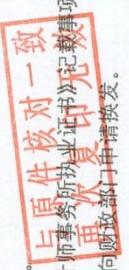 师事务所执业证书》记载事项
向财政部门申请换发。
与原件核对一致
再次复印无效